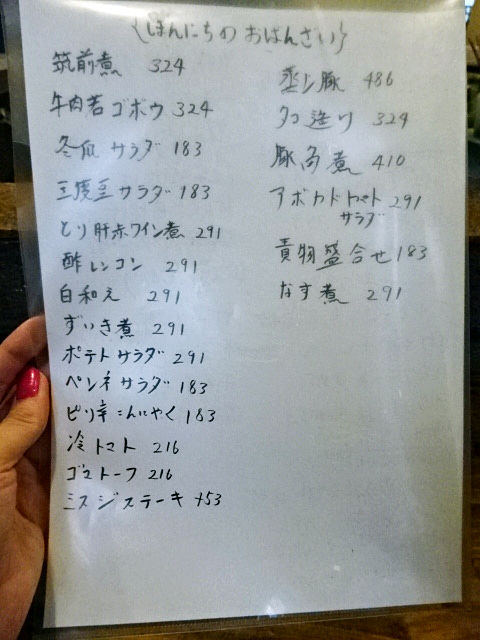 {ほんにちの おばんざい}
筑前煮 324
牛肉若ゴボウ 324
冬瓜 サラダ 183
三度豆 サラダ 183
とり肝赤ワイン煮 291
酢レンコン 291
白和え 291
ずいき煮 291
ポテトサラダ 291
ペンネサラダ 183
ピリ辛こんにゃく 183
冷トマト 216
ゴマトーフ 216
ミスジステーキ 453
蒸し豚 486
タコ造り 324
豚角煮 410
アボカドトマト 291
サラダ
青物盛合せ 183
なす煮 291